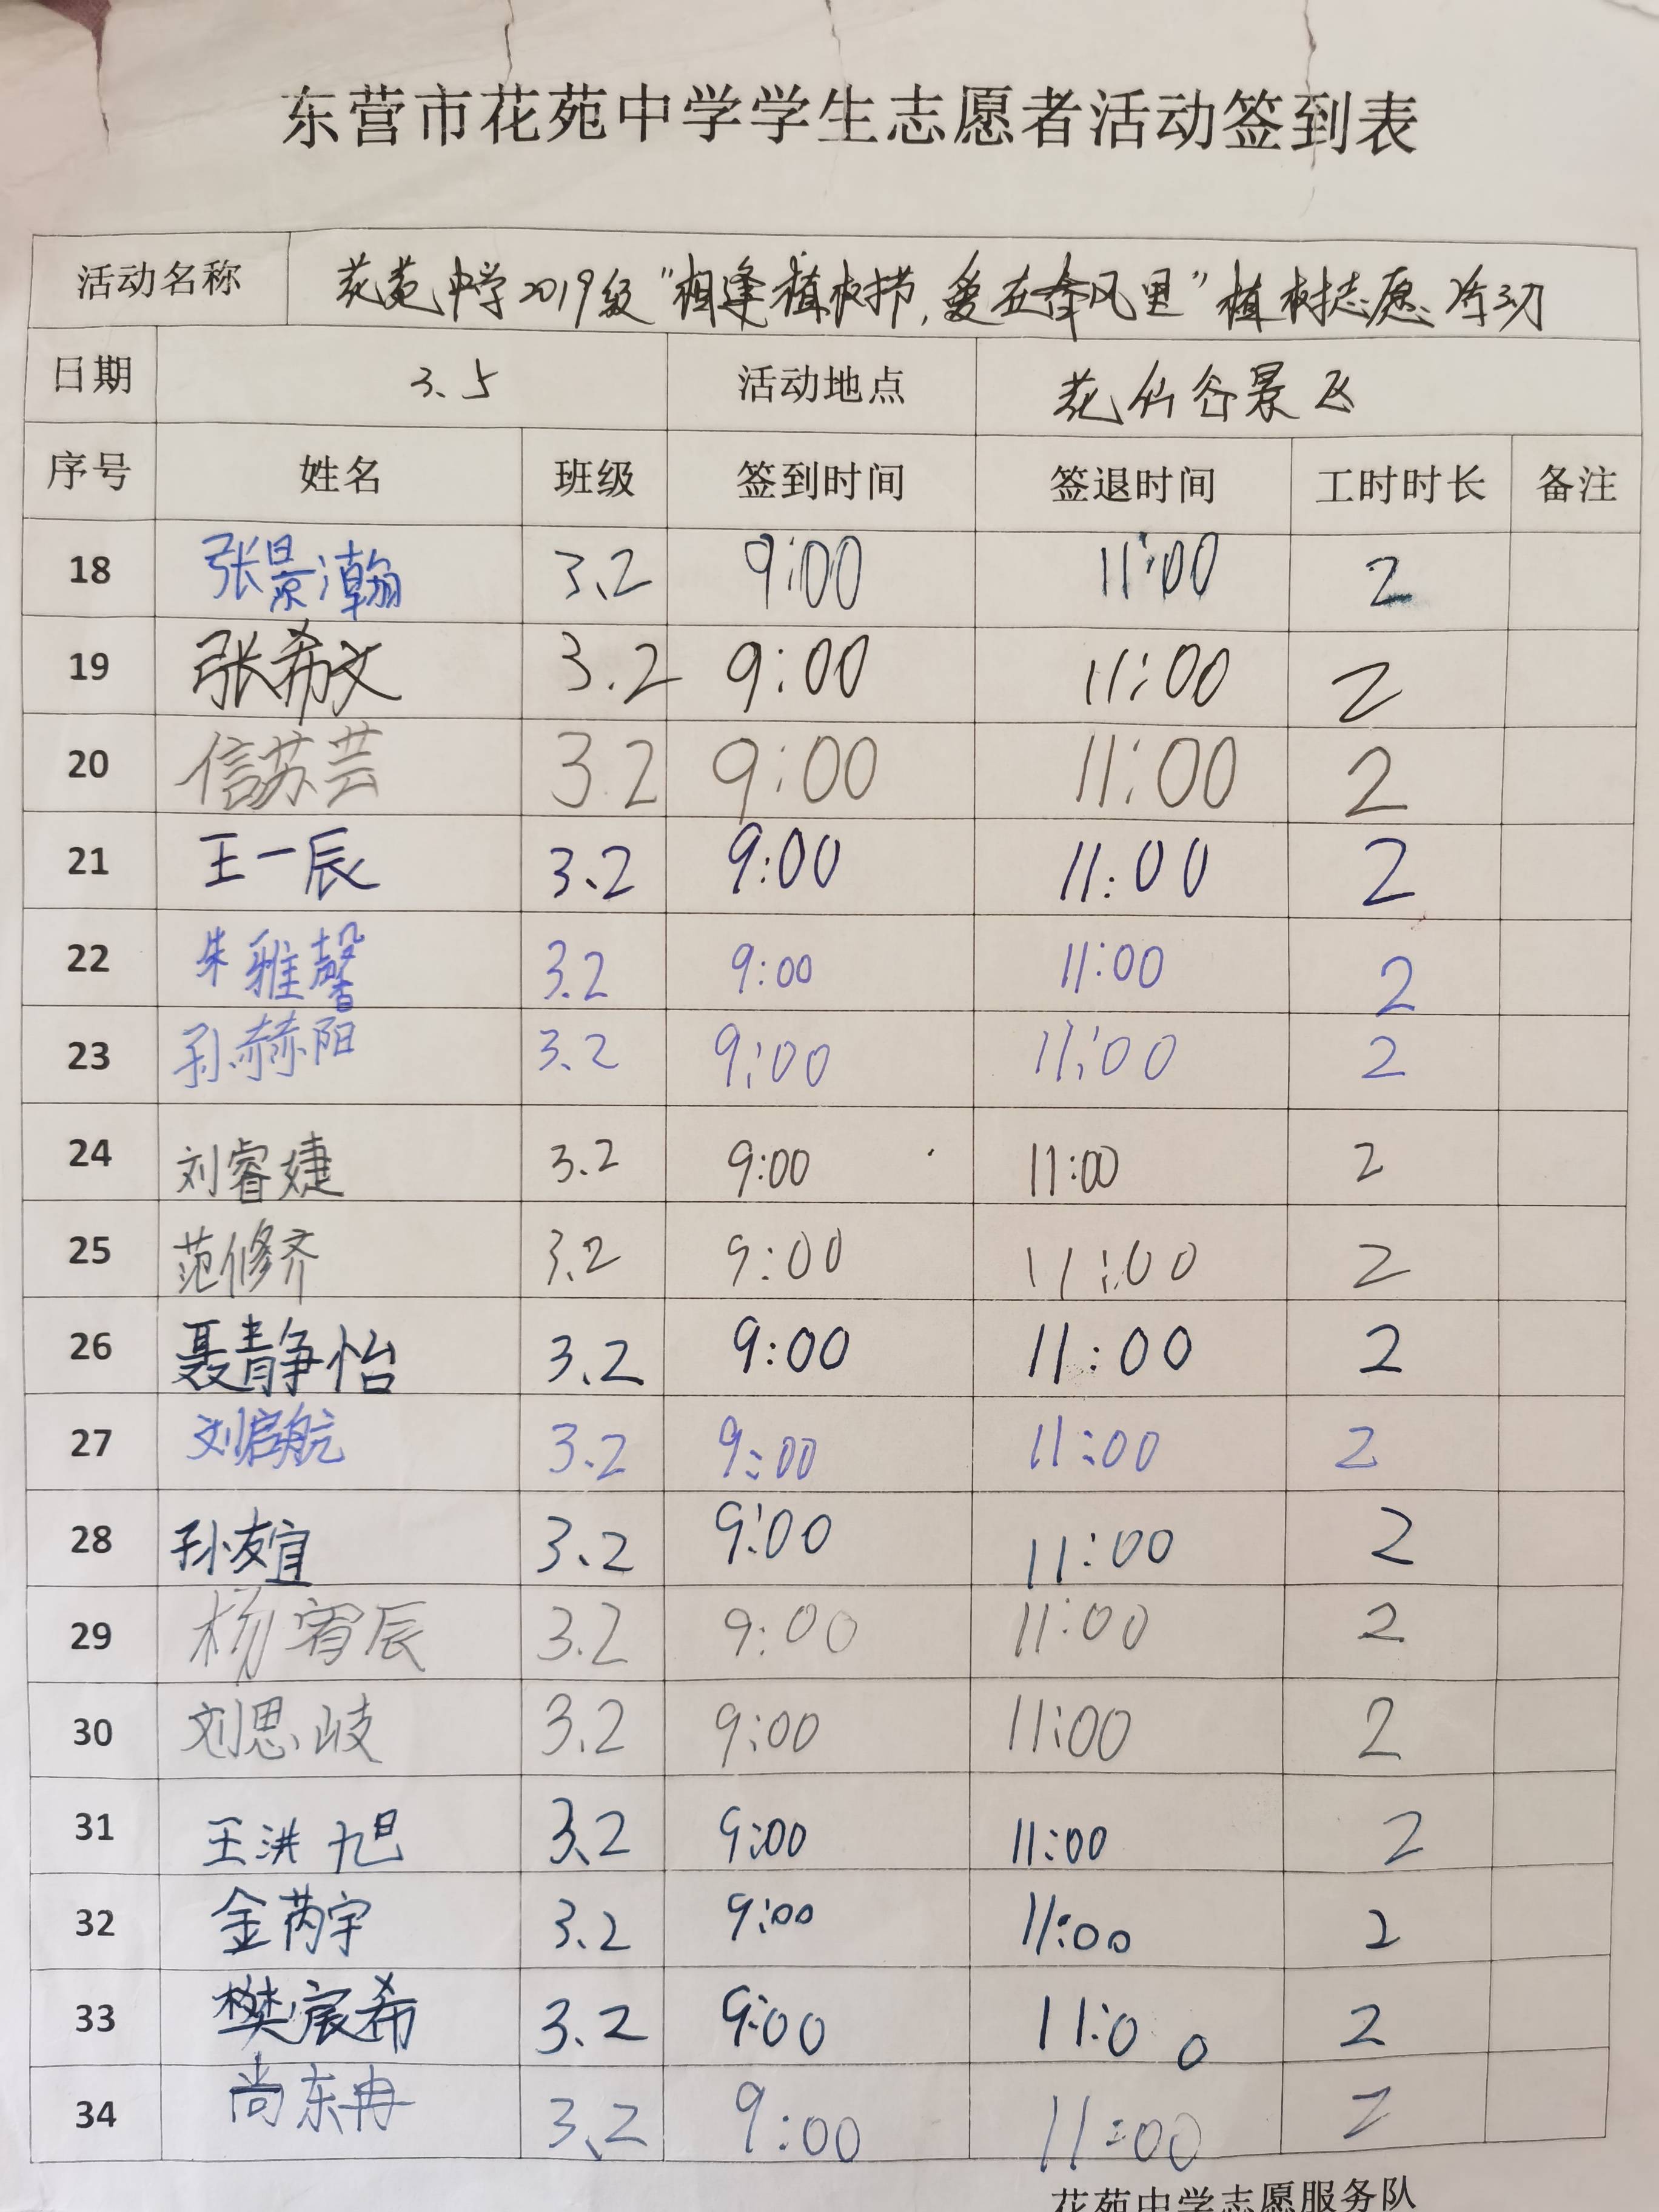 东营市花苑中学学生志愿者活动签到表
活动名称 花苑中学2019级"相逢植树节,爱在春风里"植树志愿活动
日期 3.5 活动地点 花仙谷景区
序号 姓名 班级 签到时间 签退时间 工时时长 备注
18 张景瀚 3.2 9:00 11:00 2
19 张希文 3.2 9:00 11:00 2
20 信苏芸 3.2 9:00 11:00 2
21 王一辰 3.2 9:00 11:00 2
22 朱雅馨 3.2 9:00 11:00 2
23 孙赫阳 3.2 9:00 11:00 2
24 刘睿婕 3.2 9:00 11:00 2
25 范修齐 3.2 9:00 11:00 2
26 聂静怡 3.2 9:00 11:00 2
27 刘启航 3.2 9:00 11:00 2
28 孙友宜 3.2 9:00 11:00 2
29 杨宥辰 3.2 9:00 11:00 2
30 刘思岐 3.2 9:00 11:00 2
31 王洪旭 3.2 9:00 11:00 2
32 金芮宇 3.2 9:00 11:00 2
33 樊宸希 3.2 9:00 11:00 2
34 尚东冉 3.2 9:00 11:00 2
花苑中学志愿服务队